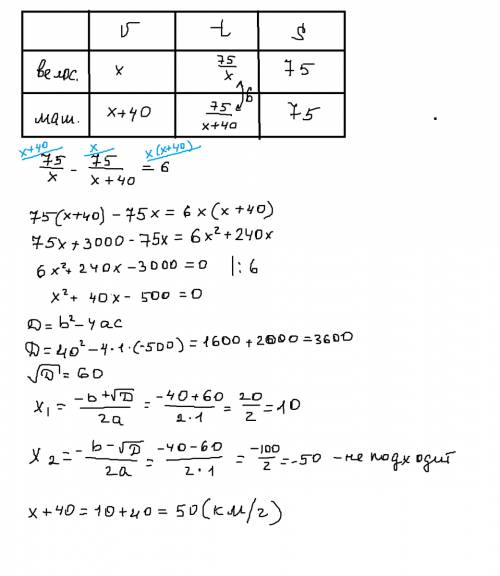 v t S
велос. x 75/x 75
6
маш. x+40 75/x+40 75
x+40 x x(x+40)
75/x - 75/x+40 = 6
75(x+40)-75x = 6x(x+40)
75x+3000-75x = 6x²+240x
6x²+240x-3000=0 |:6
x²+40x-500=0
D=b²-4ac
D=40²-4·1·(-500)=1600+2000=3600
√D=60
x₁ = -b+√D/2a = -40+60/2·1 = 20/2 = 10
x₂ = -b-√D/2a = -40-60/2·1 = -100/2 = -50 - не подходит
x+40=10+40=50(км/г)